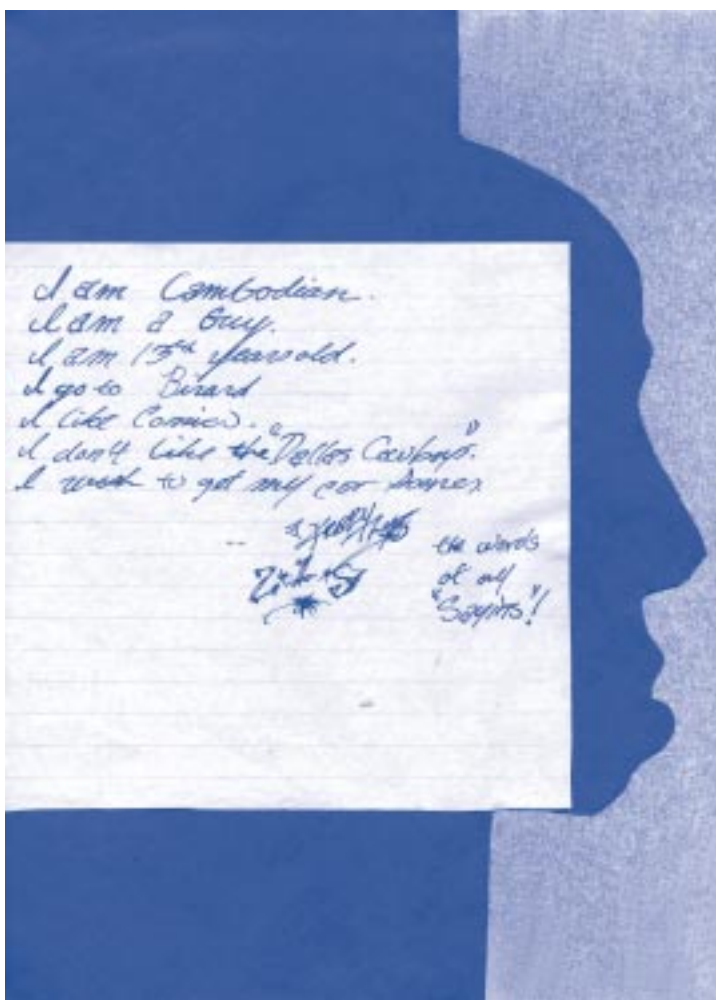 I am Cambodian.
I am a Guy.
I am 13th years old.
I go to Birard
I like Comics.
I don't like the "Dallas Cowboys".
I to get my
the words
of my
"Sayins"!